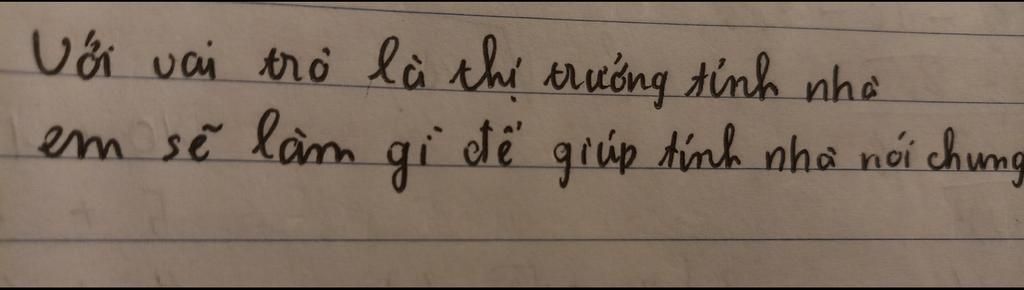 Với vai trò là thị trưởng tỉnh nhà
em sẽ làm gì để giúp tỉnh nhà nói chung